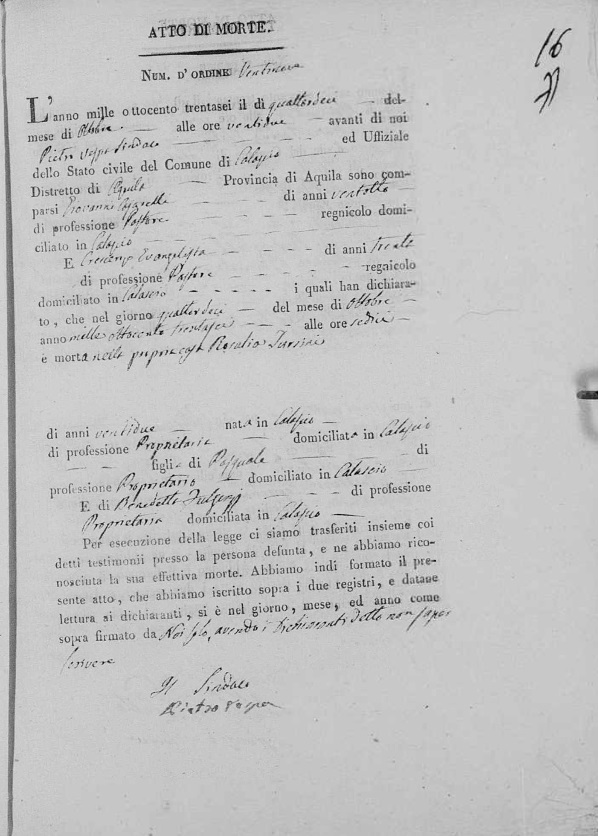 ATTO DI MORTE.
16
NUM. D'ORDINE Ventinove
L'anno mille ottocento trentasei il dì quattordici del
mese di Ottobre alle ore ventidue avanti di noi
Pietro Sindaco ed Uffiziale
dello Stato civile del Comune di Calascio
Distretto di Aquila Provincia di Aquila sono com-
parsi Giovanni di anni ventotto
di professione Pastore regnicolo domi-
ciliato in Calascio
E Crescenzo Evangelista di anni trenta
di professione Pastore regnicolo
domiciliato in Calascio i quali han dichiara-
to, che nel giorno quattordici del mese di Ottobre
anno mille Ottocento trentasei alle ore sedici
è morta nella propria casa Rosalia
di anni ventidue nata in Calascio
di professione Proprietaria domiciliata in Calascio
figlia di Pasquale di
professione Proprietario domiciliato in Calascio
E di Benedetta di professione
Proprietaria domiciliata in Calascio
Per esecuzione della legge ci siamo trasferiti insieme coi
detti testimonii presso la persona defunta, e ne abbiamo rico-
nosciuta la sua effettiva morte. Abbiamo indi formato il pre-
sente atto, che abbiamo iscritto sopra i due registri, e datane
lettura ai dichiaranti, si è nel giorno, mese, ed anno come
sopra firmato da Noi solo, avendo i Dichiaranti detto non saper
scrivere
Il Sindaco